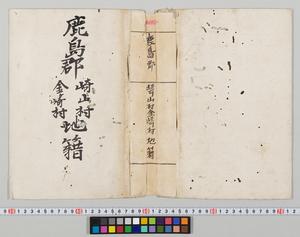 鹿島郡
崎山村
金崎村
地籍
鹿島郡
崎山村金崎村 地籍